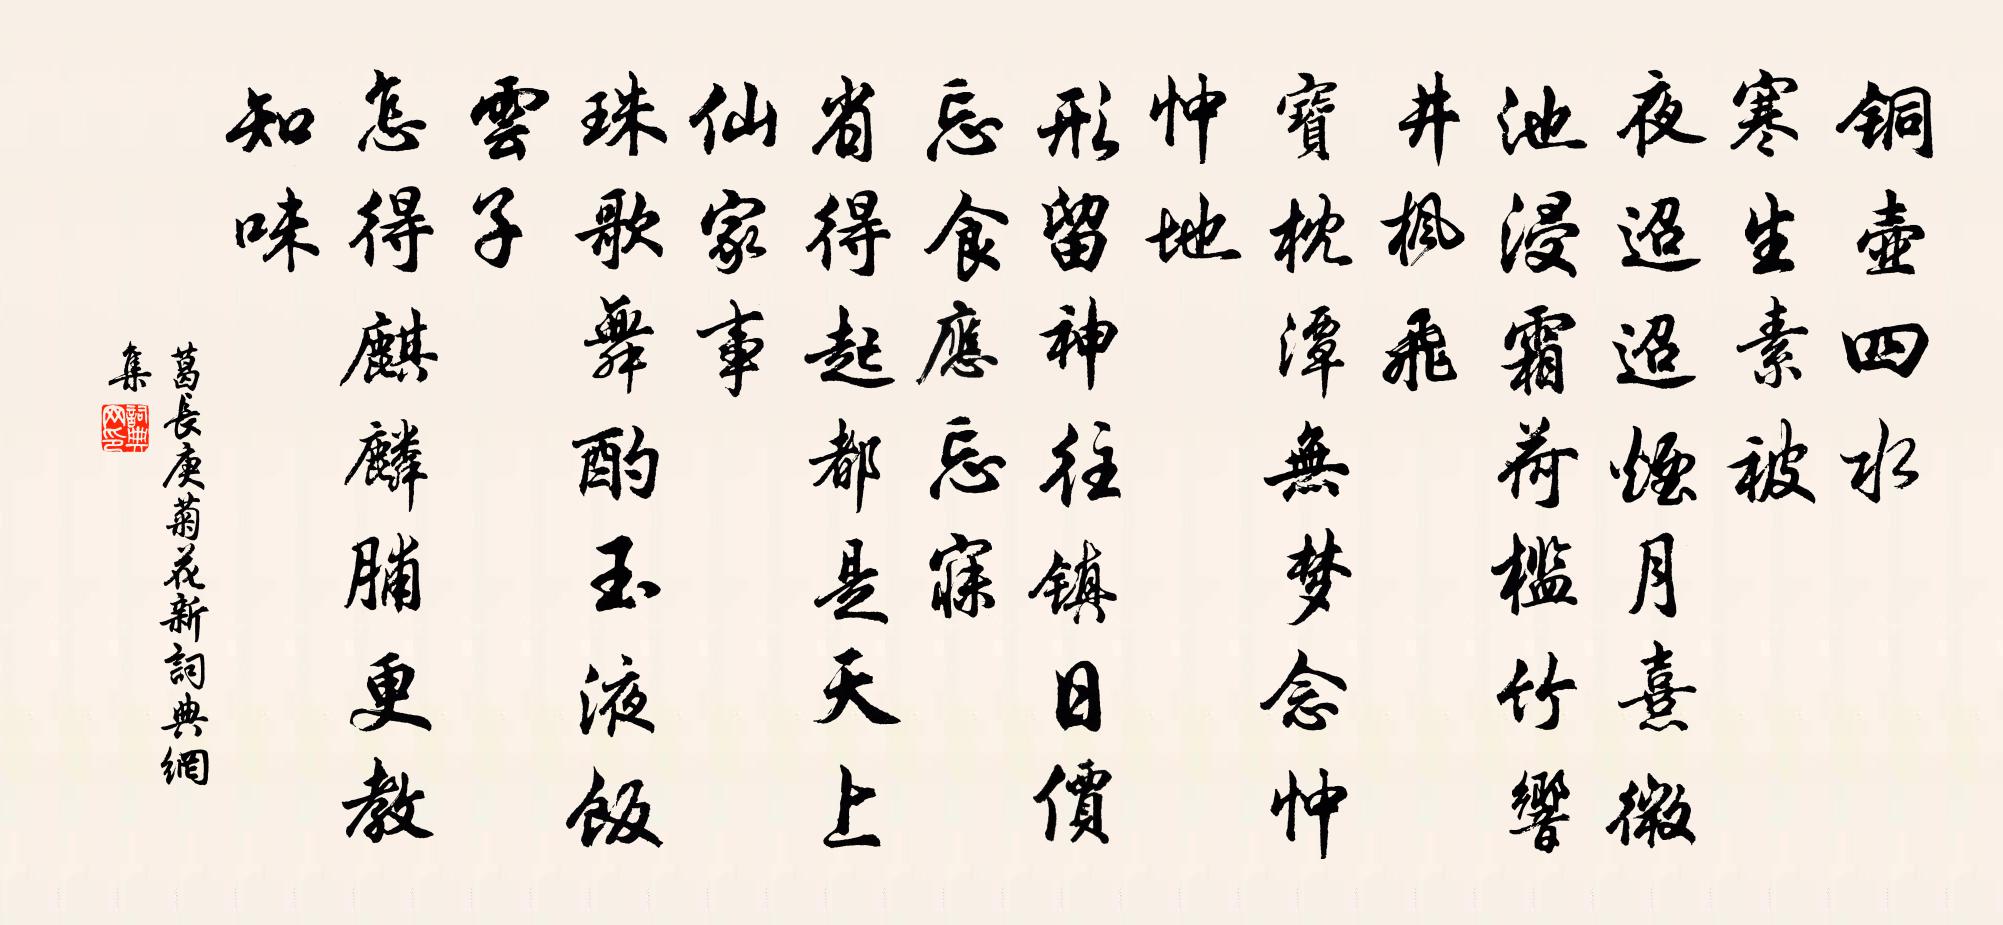 铜壶四水
寒生素被
夜迢迢烟月熹微
池浸霜荷槛竹響
井楓飛
寶枕潭無梦念忡
忡地
形留神往镇日價
忘食應忘寐
省得起都是天上
仙家事
珠歌舞酌玉液飯
雲子
怎得麒麟脯更教
知味
葛長庚菊花新詞典網
集
詞典网印